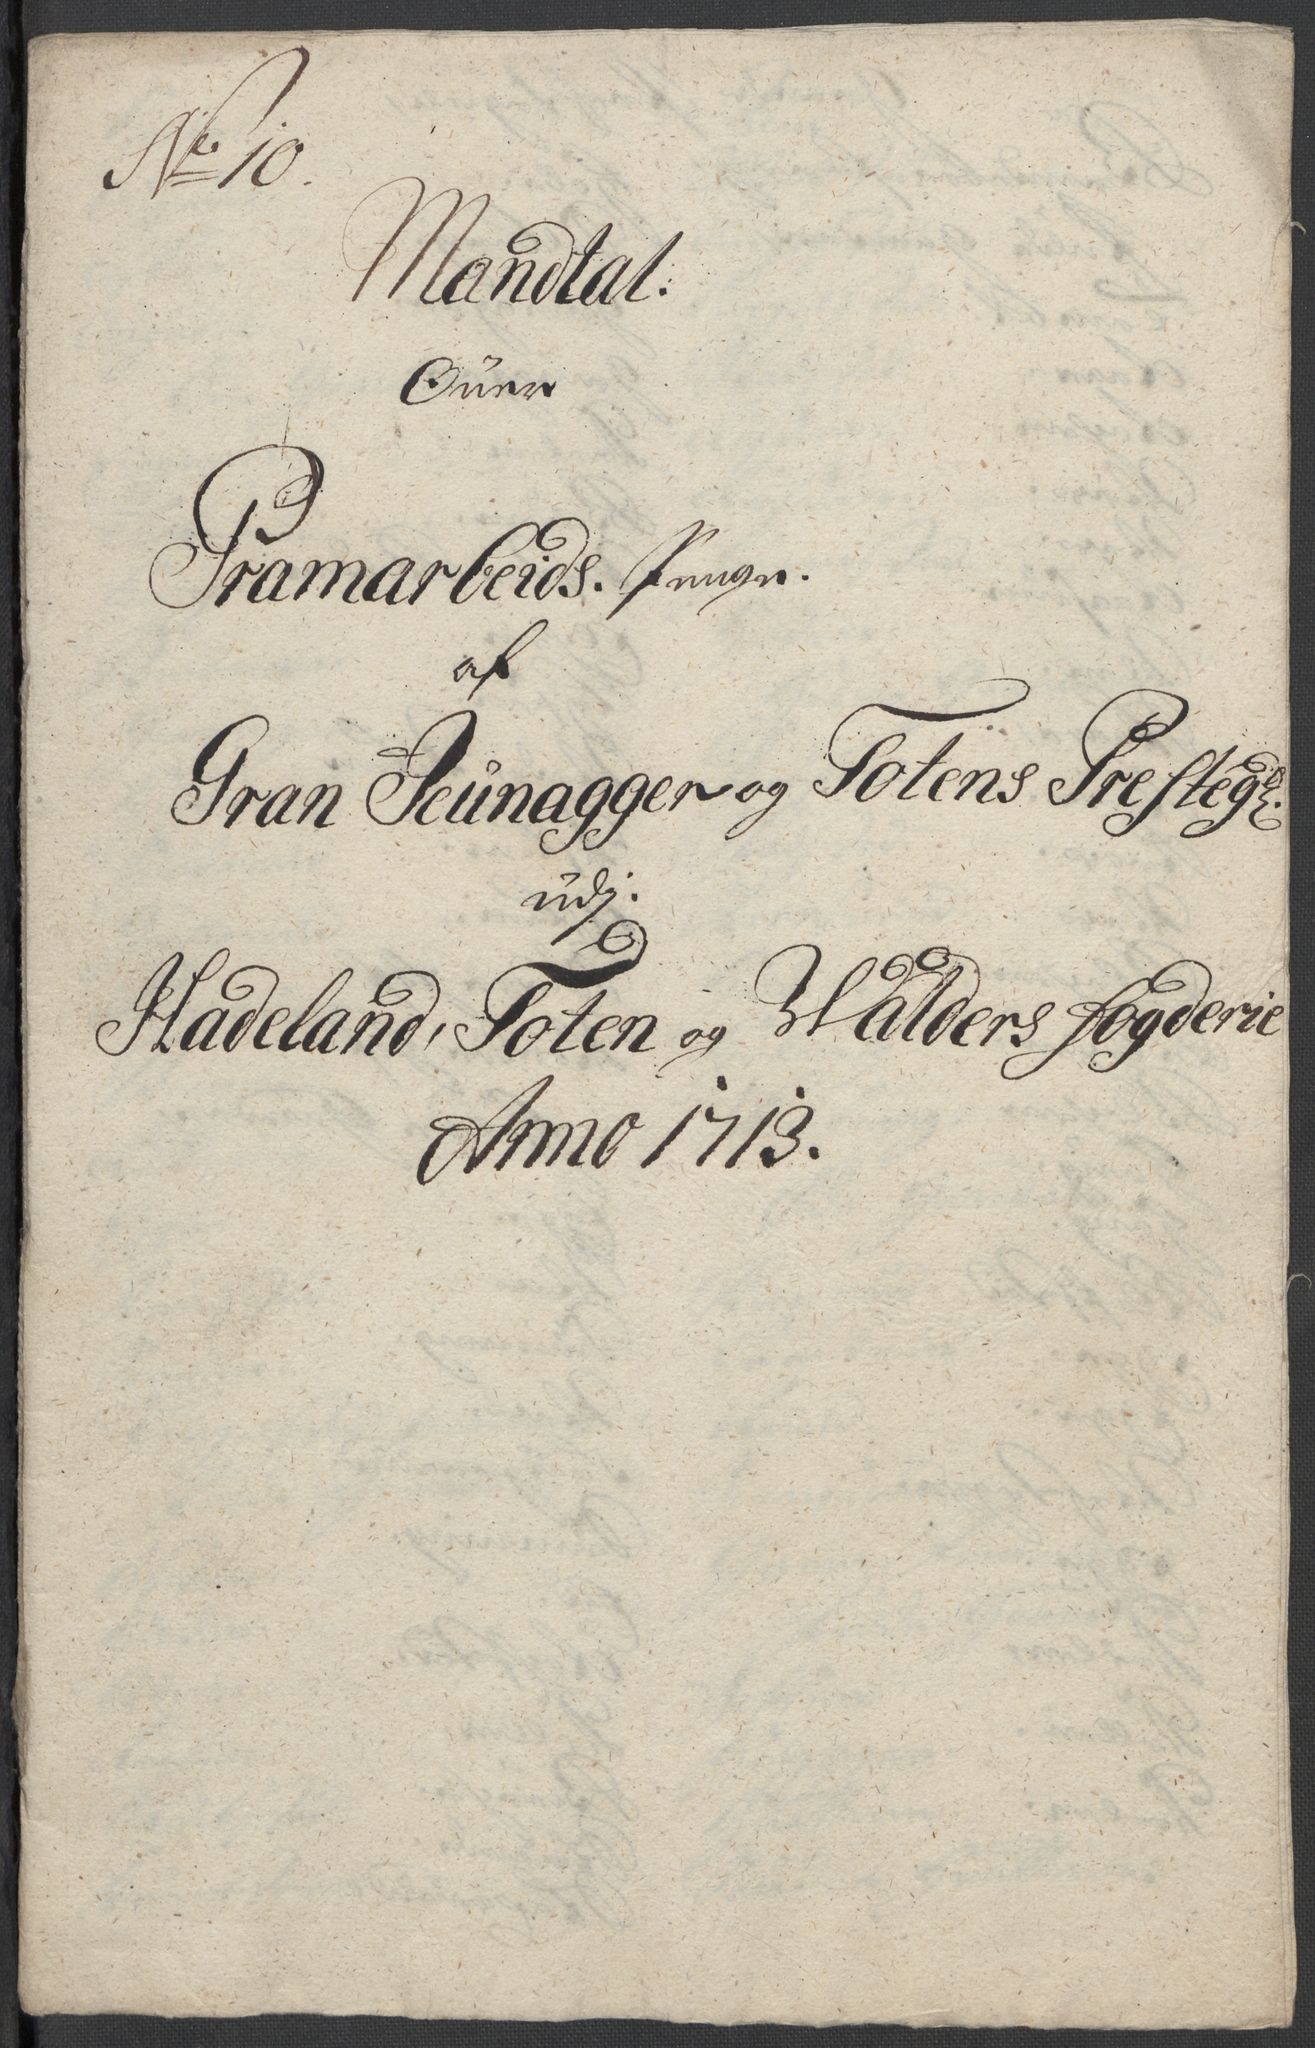 No 10.
Mandtal.
Över
Pramarbeids. Penge.
af
Gran Jeünagger og Totens Presteg:
udj.
Hadeland, Toten og Walders fogderie
Anno 1713.